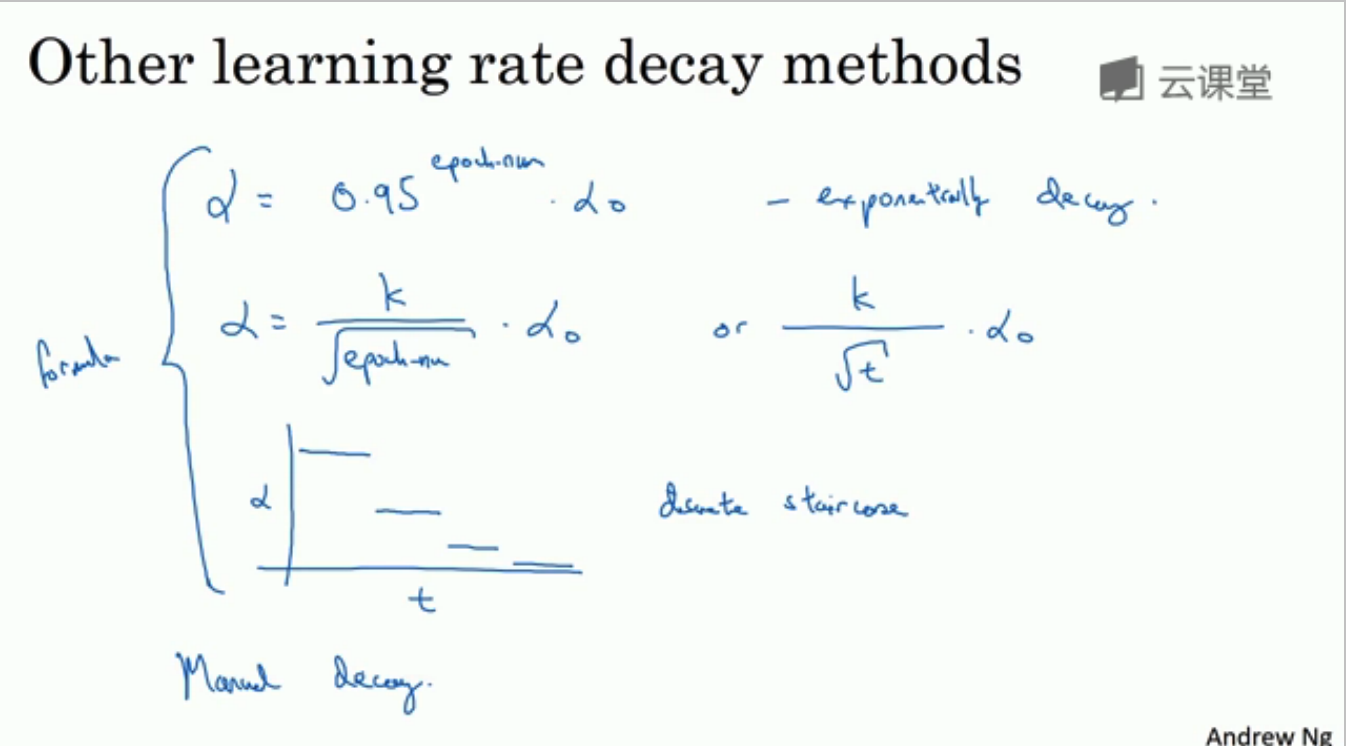 Other learning rate decay methods
云课堂
α = 0.95^epoch-num · α₀ - exponentially decay.
α = k/√epoch-num · α₀ or k/√t · α₀
formula
α
discrete staircase
t
Manual decay.
Andrew Ng